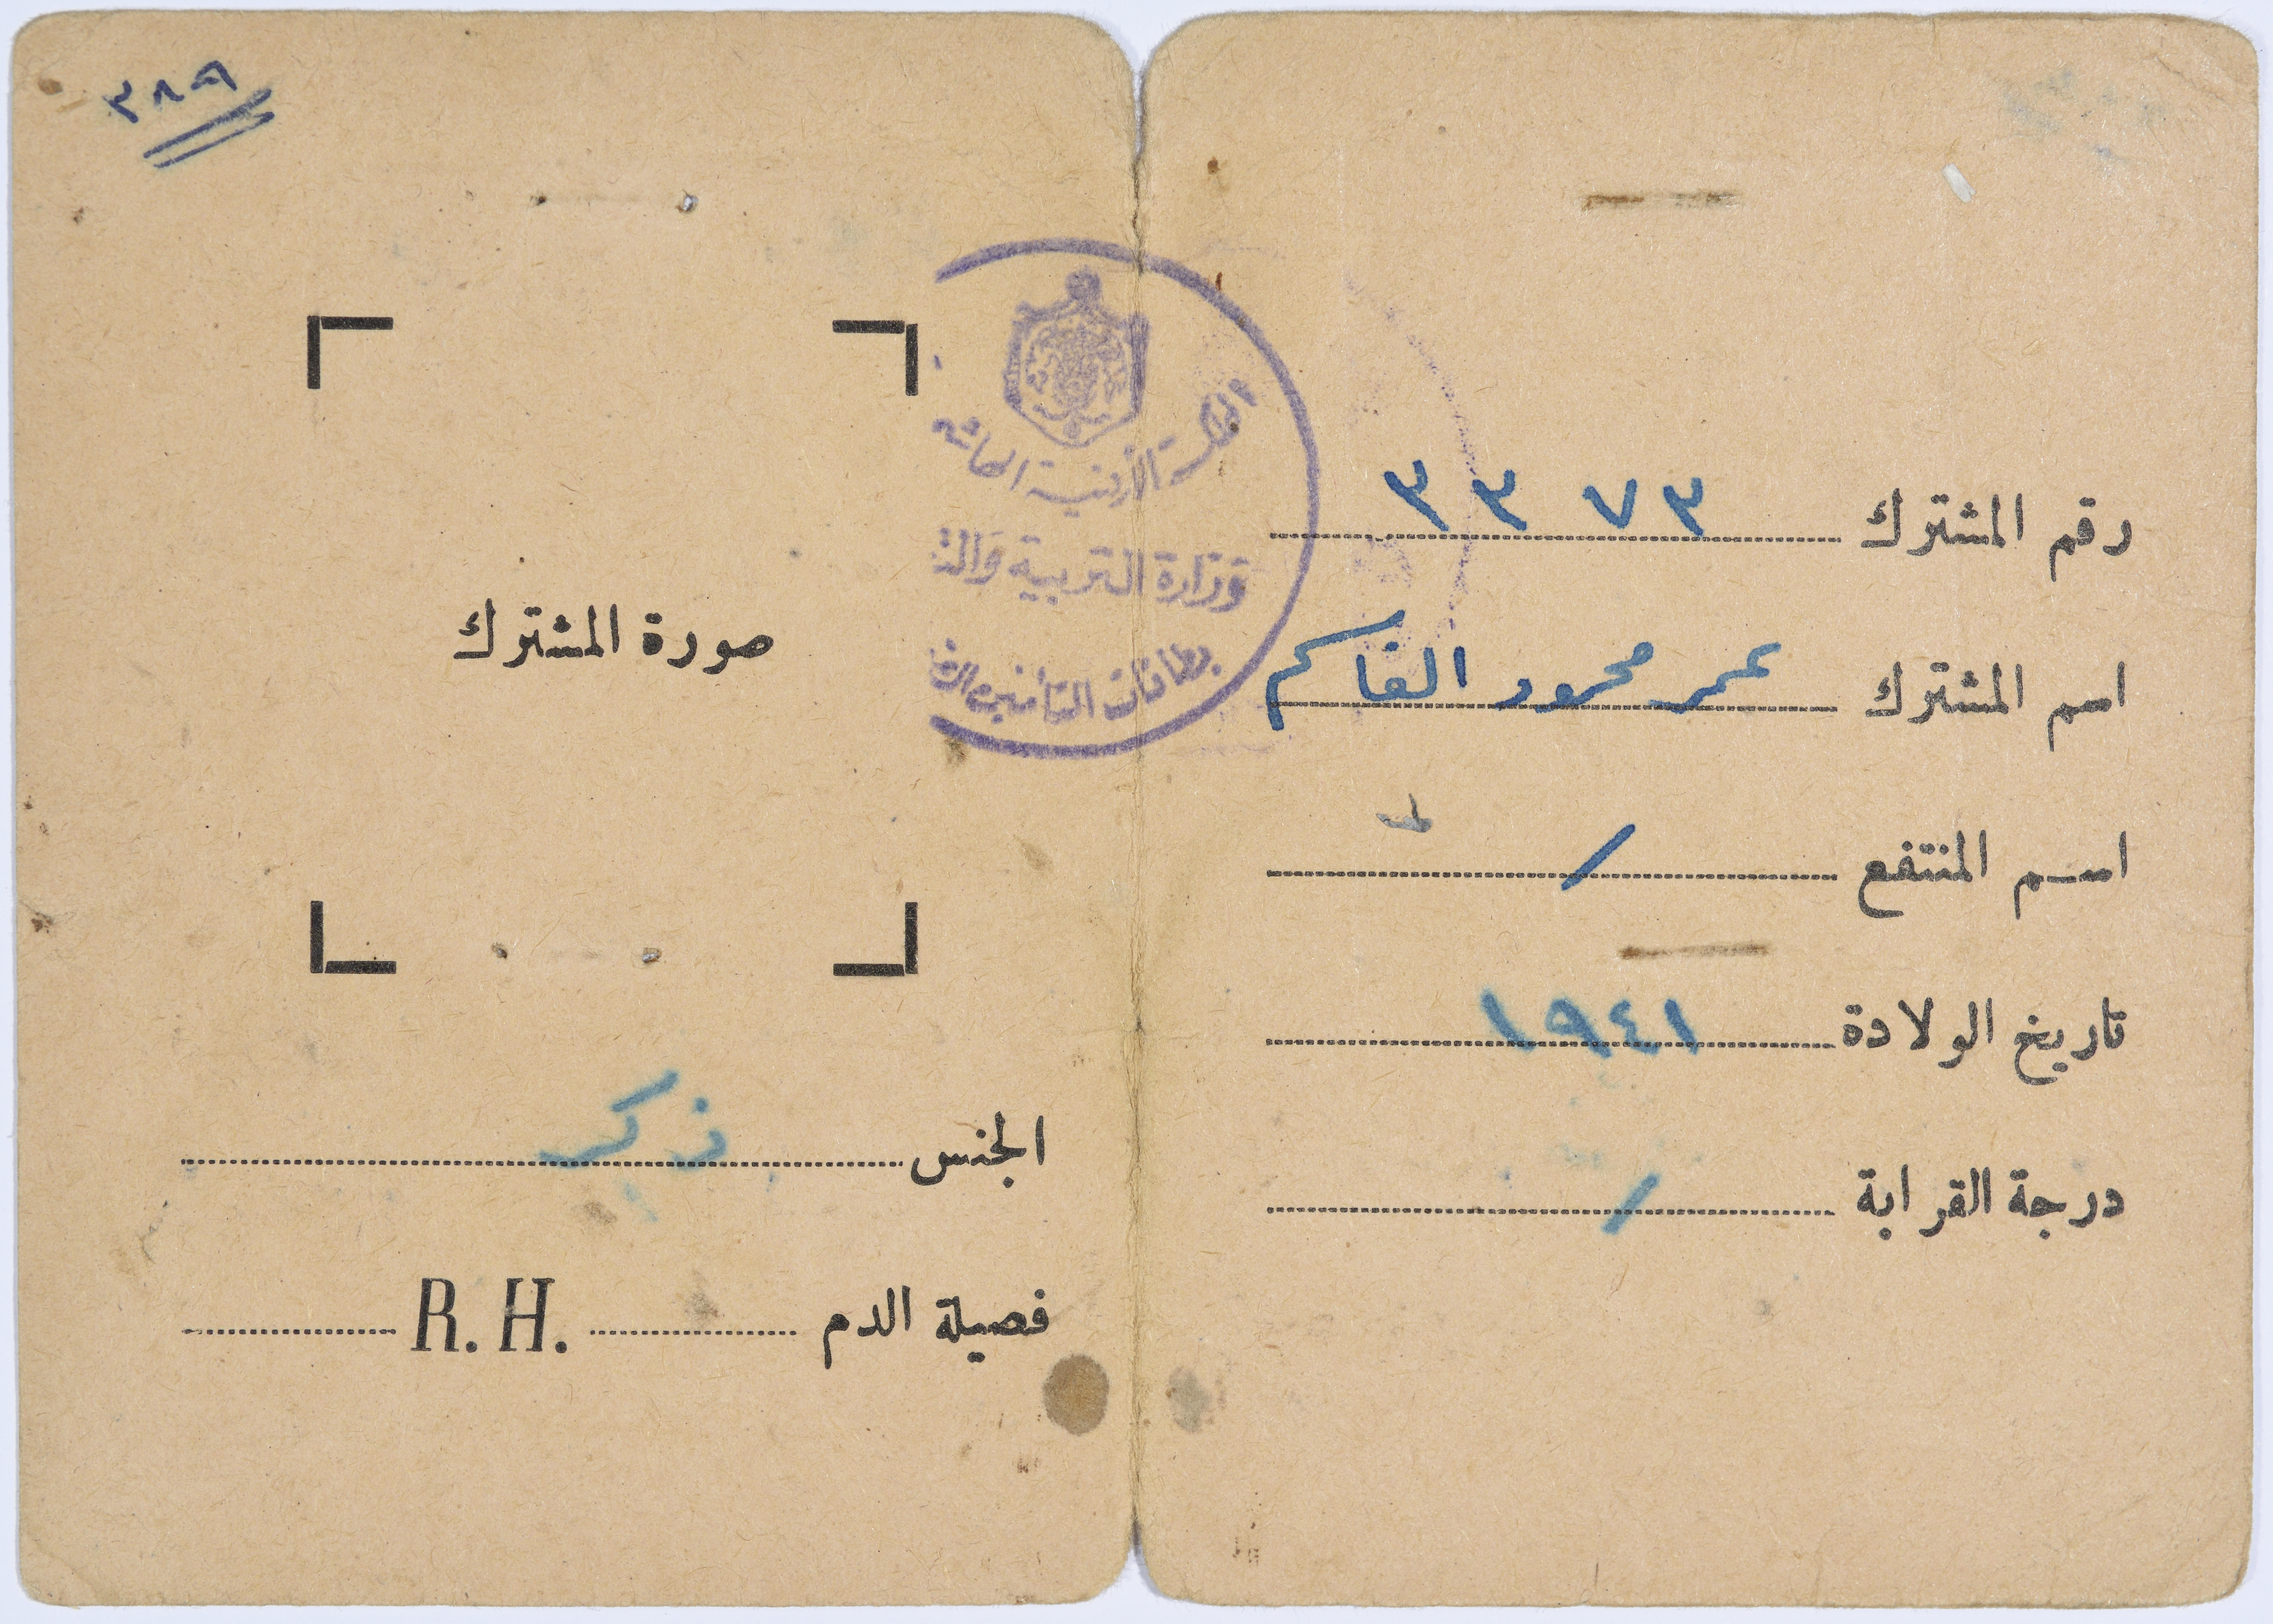 رقم المشترك ٣٣٧٣
اسم المشترك عمر محمود القاسم
اسم المنتفع /
تاريخ الولادة ١٩٤١
درجة القرابة /
٣٨٩
المملكة الأردنية الهاشم
وزارة التربية والت
بطاقات التأمين الص
صورة المشترك
الجنس ذكر
فصيلة الدم R. H.